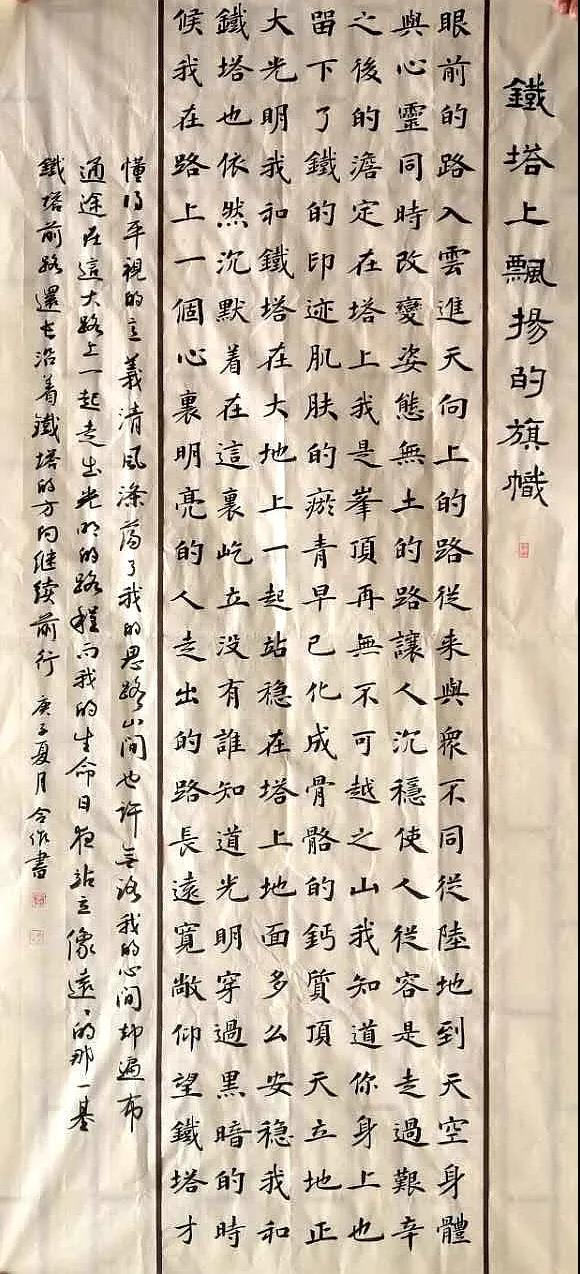 鐵塔上飄揚的旗幟
眼前的路入雲進天向上的路從来與衆不同從陸地到天空身體
與心靈同時改變姿態無土的路讓人沉穩使人從容是走過艱辛
之後的澹定在塔上我是峯頂再無不可越之山我知道你身上也
留下了鐵的印迹肌肤的瘀青早已化成骨骼的鈣質頂天立地正
大光明我和鐵塔在大地上一起站稳在塔上地面多么安稳我和
鐵塔也依然沉默着在這裏屹立没有誰知道光明穿過黑暗的時
候我在路上一個心裏明亮的人走出的路長遠寬敞仰望鐵塔才
懂得平視的意義清風滌蕩了我的思路山間也許無路我的心間却遍布
通途在這大路上一起走出光明的路程而我的生命日夜站立像遠遠的那一基
鐵塔前路還長沿着鐵塔的方向继续前行 庚子夏月 合作書